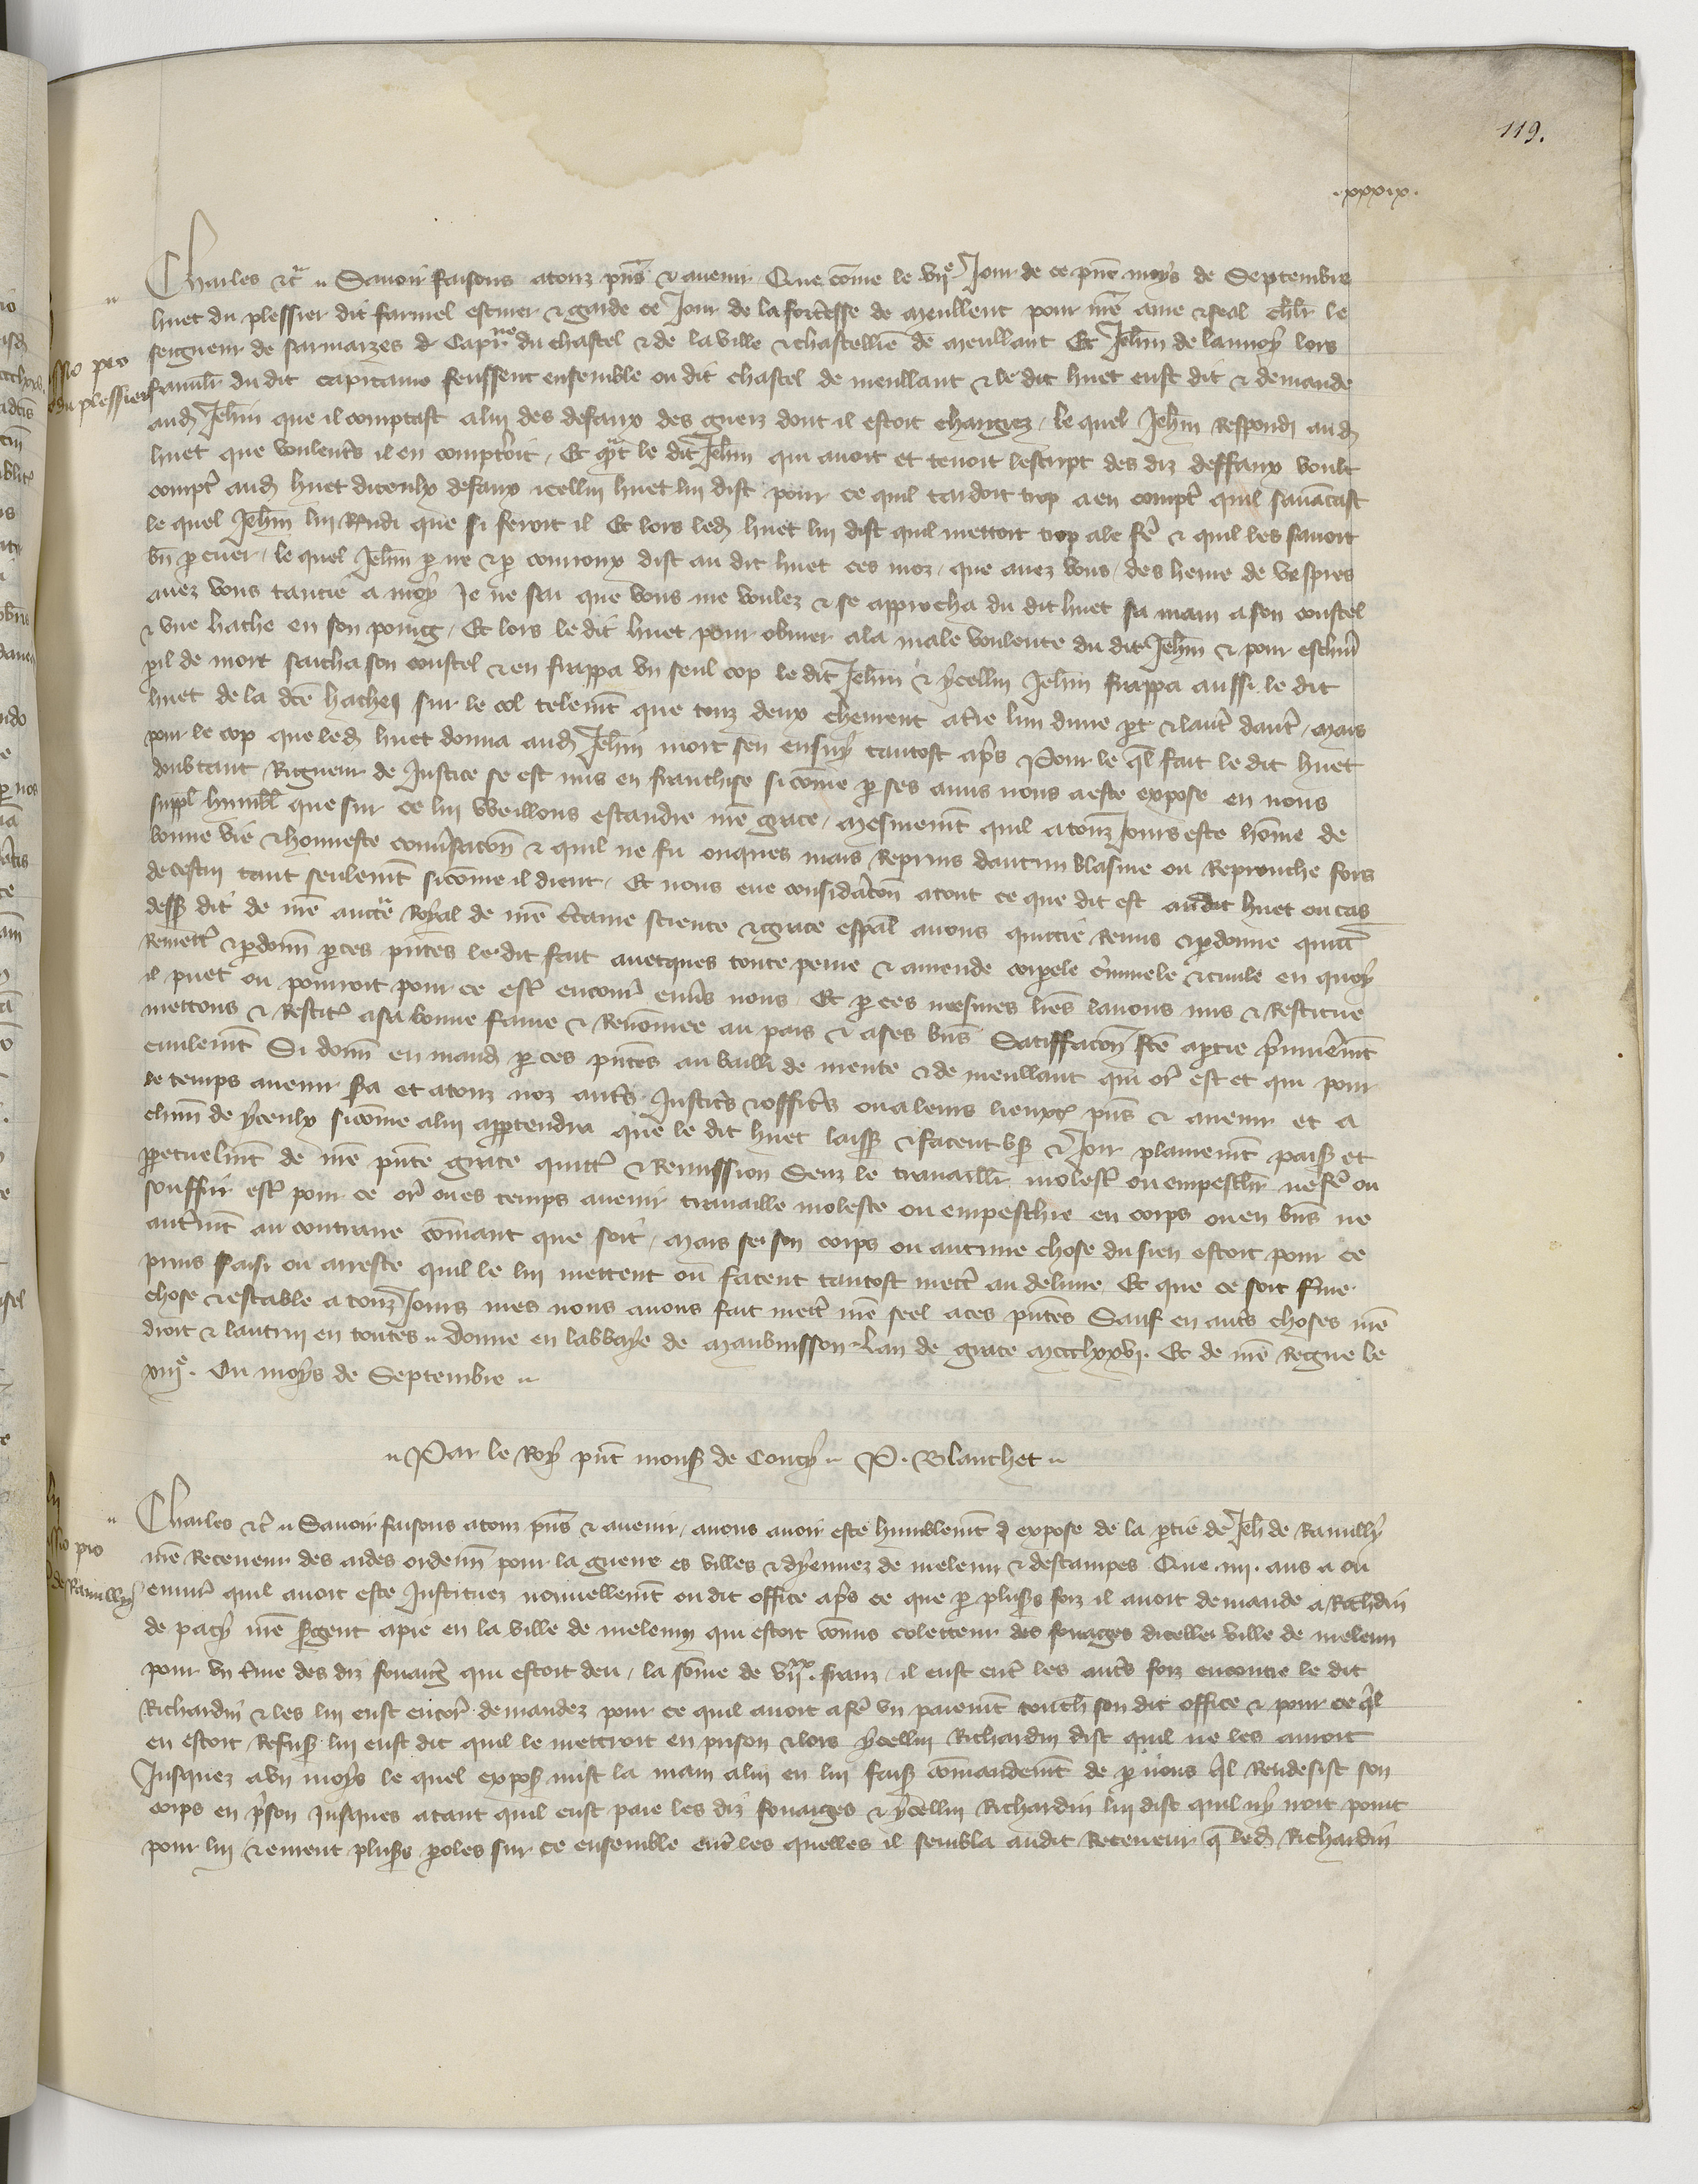 119.
.xxxix.
Charles etc̃ Sauoir faisons a touz pñs & auenir Que cõme le vijᵉ Jour de ce pñt moys de Septembre
huet du plessier dit farinel escuier & garde ce Jour de la fortesse de meullent pour nr̃e ame & feal chlr̃ le
seigneur de sarmaizes & capitⁿᵉ du chastel & de la ville & chastellie de meullant Et Jehñ de lannoy lors
famill̃r du dit capitaine feussent ensemble ou dit chastel de meullant & le dit huet eust dit & demande
aud̃ Jehñ que il comptast a lui des defaux des guez dont il estoit chargez, le quel Jehñ respondi aud̃
huet que voulentr̃s il en comptr̃oit, Et qñt le dit Jehñ qui auoit et tenoit lescript des diz deffaux voult
comptr̃ aud̃ huet diceulx defaux icellui huet lui dist pour ce quil tardoit trop a en comptr̃ quil sauãcast
le quel Jehñ lui rñdi que si feroit il Et lors led̃ huet lui dist quil mettoit trop a le fẽ & quil les sauoit
bñ p̱ cuer, le quel Jehñ p̱ ire & p̱ courroux dist au dit huet ces moz, que auez vous, des heure de vespres
auez vous tancie a moy Je ne sai que vous me voulez & se approcha du dit huet sa main a son coustel
& vne hache en son poing, Et lors le dit huet pour obuier a la male voulente du dit Jehñ & pour eschiuer̃
p̱il de mort saicha son coustel & en frappa vn seul cop le dit Jehñ & ycellui Jehñ frappa aussi le dit
huet de la dcẽ hache sur le col telemt̃ que touz deux cheirent a tr̃re lun dune p̱t & lautr̃ dautr̃, mais
pour le cop que led̃ huet donna aud̃ Jehñ mort sen ensuy tantost apr̃s Pour le ql̃ fait le dit huet
doubtant Rigueur de Justice se est mis en franchise si cõme p̱ ses amis nous a este expose en nous
suppl̃ humbl̃ que sur ce lui vueillons estandre nr̃e grace, mesmemt̃ quil a touz Jours este hõme de
bonne vie & honneste conũsacõn & quil ne fu onques mais repris dautrui blasme ou reprouche fors
de cestui tant seulemt̃ si cõme il dient, Et nous eue considãcõn a tout ce que dit est audit huet ou cas
dess̃ dit de nr̃e auctẽ Royal de nr̃e c̃taine science & grace esp̱al auons quictie remis & p̱donne quictr̃
remettr̃ & p̱donñ p̱ ces pñtes le dit fait auecques toute peine & amende corp̱ele c̃iminele & ciuile en quoy
il puet ou pourroit pour ce estr̃ encourũ enũs nous Et p̱ ces mesmes lr̃es lauons mis & restitue
mettons & restitũ a sa bonne fame & renõmee au pais & a ses bñs Satiffacõn fcẽ a p̱tie p̃mieremt̃
ciuilemt̃ Si donñ en mand̃ p̱ ces pñtes au bailli de mente & de meullant qui or̃ est et qui pour
le temps auenir s̃a et a touz noz autr̃s Justicr̃s & officr̃s ou a leurs lieuxt̃ pñs & auenir et a
chũn de yceulx si cõme a lui app̱tendra que le dit huet laiss̃ & facent vs̃ & Joir plainemt̃ pais̃ et
p̱petuelmt̃ de nr̃e pñte grace quictr̃ & remission Senz le trauaillr̃ molestr̃ ou empeschr̃ ne fẽ ou
souffrir estr̃ pour ce or̃ ou es temps auenir trauaille moleste ou empeschie en corps ou en bñs ne
autr̃mt̃ au contraire cõmant que soit, mais se son corps ou autrune chose du sien estoit pour ce
pris saisi ou arreste quil le lui mettent ou facent tantost mectr̃ au deliure Et que ce soit fr̃me
chose & estable a touz Jours mes nous auons fait mectr̃ nr̃e seel a ces pñtes Sauf en autr̃s choses nr̃e
droit & lautrui en toutes Donne en labbaye de maubuisson Lan de grace mccclxxvj. Et de nr̃e regne le
xiijᵉ. Ou moys de Septembre
Par le Roy pñt mons̃ de Coucy P. Blanchet
Charles etc̃ Sauoir faisons a touz pñs & auenir, auons auoir este humblemt̃ expose de la p̱tie de Jeh̃ de Ramilly
nr̃e receueur des aides ordenñ pour la guerre es villes & dyennez de meleun & destampes Que .iiij. ans a ou
enuir̃ quil auoit este Instituez nouuellemt̃ ou dit office apr̃s ce que p̱ plus̃s foiz il auoit demande a Richdin
de pacy nr̃e s̃gent a pie en la ville de meleun qui estoit cõmis colecteur des fouages dicelle ville de meleun
pour vn t̃me des diz fouaiges̃ qui estoit deu, la sõme de vijˣˣ. frans, il eust entr̃ les autr̃s foiz encontre le dit
Richardin & les lui eust encor̃ demandez pour ce quil auoit a fẽ vn paiemt̃ touch̃ son dit office & pour ce ql̃
en estoit refus̃ lui eust dit quil le mettroit en prison & lors ycellui Richardin dist quil ne les auroit
Jusquez a vn moys le quel expos̃ mist la main a lui en lui fais̃ cõmandemt̃ de p̱ nous ql̃ rendesist son
corps en p̃son Jusques a tant quil eust paie les diz fouaiges & ycellui Richardin lui dist quil ny iroit point
pour lui & eurent plus̃s p̱oles sur ce ensemble entr̃ les quelles il sembla audit Receueur q̃ led̃ Richardin
ssio pro
du plessier
ssio pro
de Ramilly